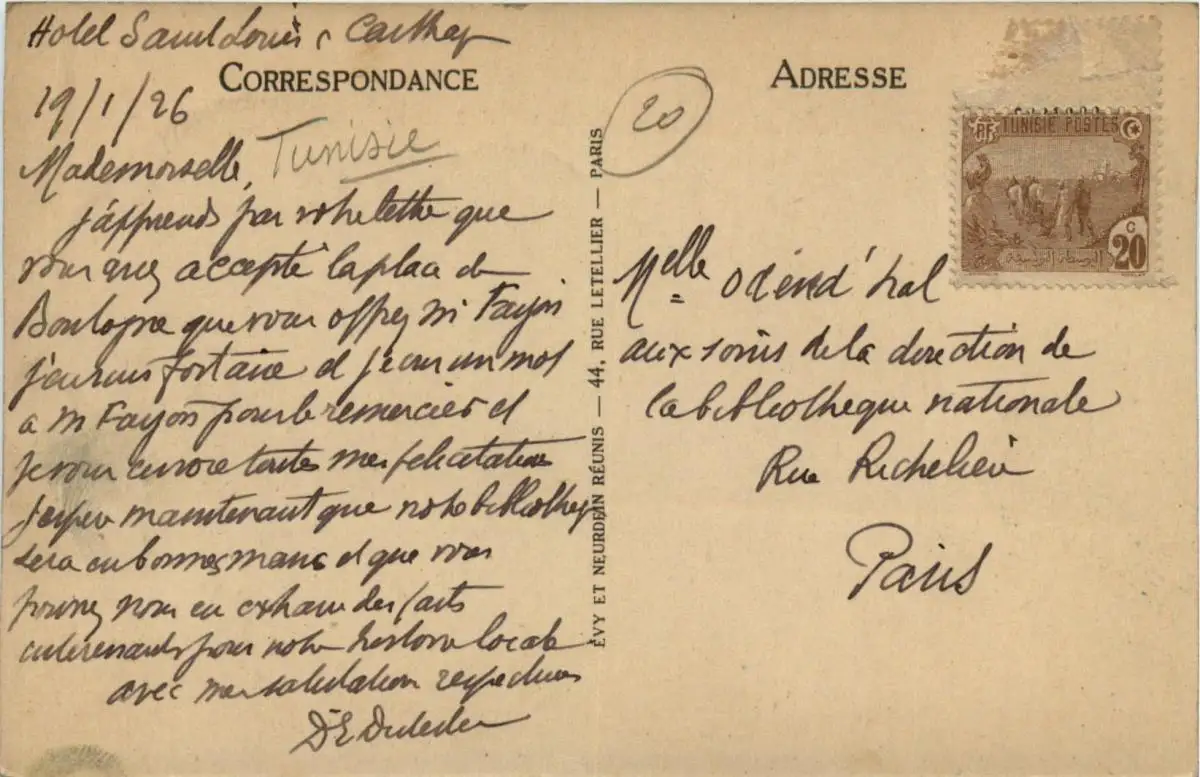 Hotel Saint Louis Carthage
CORRESPONDANCE
19/1/26
Tunisie
Mademoiselle,
j'apprends par votre lettre que
vous avez accepté la place de
Boulogne que vous offrez Mr Fayon
fortaise et un mot
a Mr Fayon pour le remercier et
je vous envoie toutes mes félicitations
J'espère maintenant que notre bibliotheq
sera en bonnes mains et que vous
pourrez nous en extraire des faits
interessants pour notre histoire locale
avec mes salutations respectueuses
Dr E
ÉVY ET NEURDEIN RÉUNIS — 44, RUE LETELLIER — PARIS
20
ADRESSE
RF TUNISIE POSTES
C
20
Melle Odend'hal
aux soins de la direction de
la bibliotheque nationale
Rue Richelieu
Paris